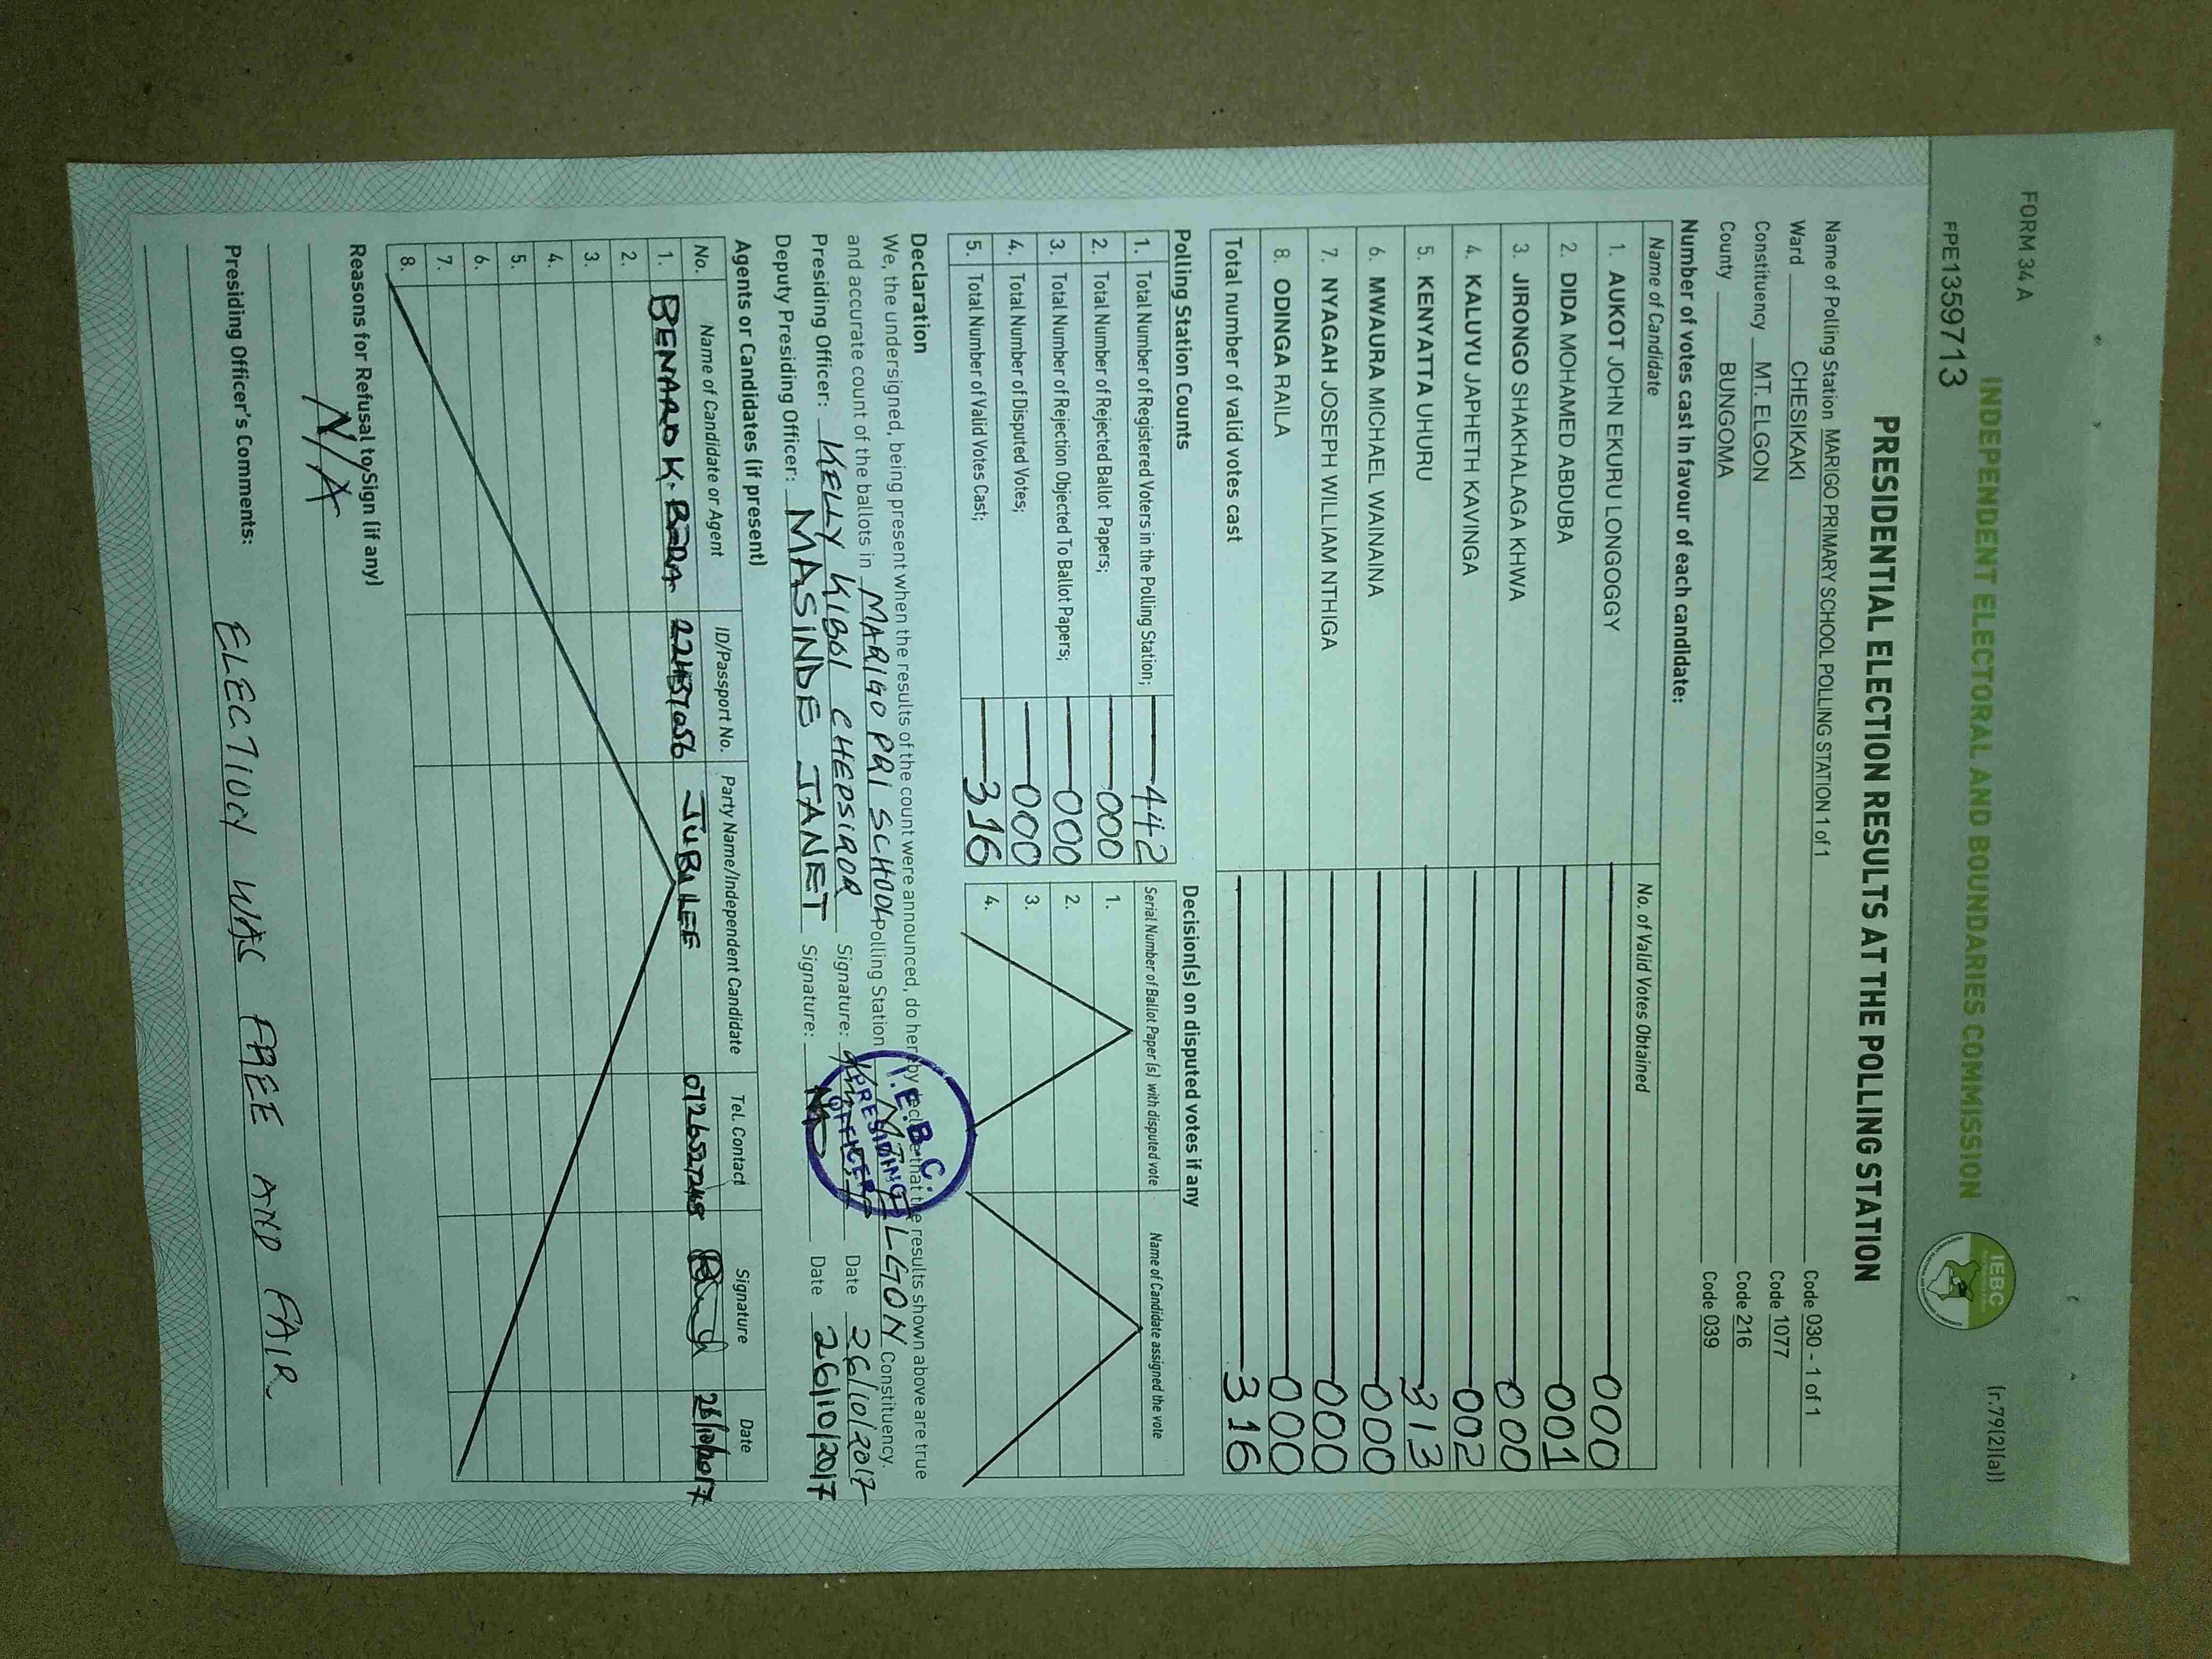 FORM 34 A
(r.79(2)(a))
INDEPENDENT ELECTORAL AND BOUNDARIES COMMISSION
IEBC
FPE1359713
PRESIDENTIAL ELECTION RESULTS AT THE POLLING STATION
Name of Polling Station MARIGO PRIMARY SCHOOL POLLING STATION 1 of 1 Code 030 - 1 of 1
Ward CHESIKAKI Code 1077
Constituency MT. ELGON Code 216
County BUNGOMA Code 039
Number of votes cast in favour of each candidate:
Name of Candidate No. of Valid Votes Obtained
1. AUKOT JOHN EKURU LONGOGGY 000
2. DIDA MOHAMED ABDUBA 001
3. JIRONGO SHAKHALAGA KHWA 000
4. KALUYU JAPHETH KAVINGA 002
5. KENYATTA UHURU 313
6. MWAURA MICHAEL WAINAINA 000
7. NYAGAH JOSEPH WILLIAM NTHIGA 000
8. ODINGA RAILA 000
Total number of valid votes cast 316
Polling Station Counts
1. Total Number of Registered Voters in the Polling Station; 442
2. Total Number of Rejected Ballot Papers; 000
3. Total Number of Rejection Objected To Ballot Papers; 000
4. Total Number of Disputed Votes; 000
5. Total Number of Valid Votes Cast; 316
Decision(s) on disputed votes if any
Serial Number of Ballot Paper (s) with disputed vote Name of Candidate assigned the vote
1.
2.
3.
4.
Declaration
We, the undersigned, being present when the results of the count were announced, do hereby declare that the results shown above are true
and accurate count of the ballots in MARIGO PRI SCHOOL Polling Station MT ELGON Constituency.
Presiding Officer: KELLY KIBOI CHEPSIROR Signature: Date 26/10/2017
Deputy Presiding Officer: MASINDE JANET Signature: Date 26/10/2017
I.E.B.C.
PRESIDING
OFFICER
Agents or Candidates (if present)
No. Name of Candidate or Agent ID/Passport No. Party Name/Independent Candidate Tel. Contact Signature Date
1. BENARD K. 22437056 JUBILEE 0726527248 26/10/2017
2.
3.
4.
5.
6.
7.
8.
Reasons for Refusal to Sign (if any)
N/A
Presiding Officer's Comments: ELECTION WAS FREE AND FAIR